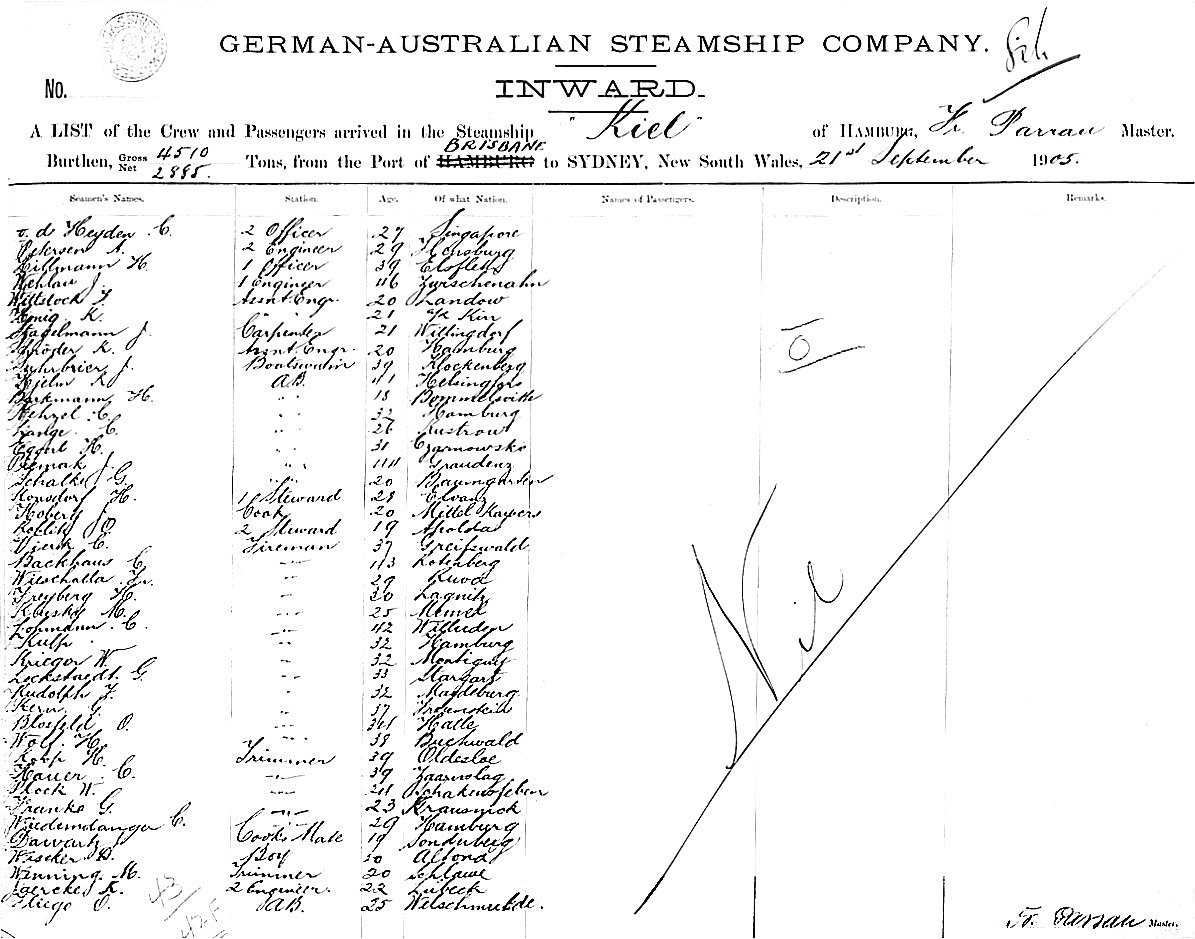 GERMAN-AUSTRALIAN STEAMSHIP COMPANY.
INWARD.
No.
A LIST of the Crew and Passengers arrived in the Steamship "Kiel" of HAMBURG, Fr. Parrau Master.
BRISBANE
Burthen, Gross 4510 Net 2885. Tons, from the Port of HAMBURG to SYDNEY, New South Wales, 21st September 1905.
Seamen's Names. Station. Age. Of what Nation. Names of Passengers. Description. Remarks.
v. d. Heyden C. 2 Officer 27 Singapore
Petersen A. 2 Engineer 29 Flensburg
Hillmann H. 1 Officer 39 Elsfleth
Wehlau J. 1 Engineer 46 Zwischenahn
Wittstock F. Assnt. Engr. 20 Landow
Emig K. " " 21 Kirn
Stagelmann J. Carpenter 21 Willingdorf
Schröder K. Assnt. Engr. 20 Hamburg
Fuhrbrier J. Boatswain 39 Klockenberg
Hjelm K. A.B. 41 Helsingfors
Barkmann H. " " 18 Bommelsvitte
Wehzel C. " " 32 Hamburg
Lange C. " " 26 Kustrow
Eggert H. " " 31 Czarnowske
J. " " 44 Graudenz
Schalke G. " " 20 Baumgarten
Konsdorf H. 1 Steward 28
Hobert J. Cook 20 Mittel
Koblitz O. 2 Steward 19 Apolda
C. Fireman 37 Greifswald
Backhaus C. " 43 Rotenberg
Wieschalla Fr. " 29
Freyberg H. " 30 Lagnitz
M. " 25 Memel
Lohmann C. " 42
" 32 Hamburg
Krieger W. " 32 Montigny
Lockstaedt G. " 33 Stargart
Rudolph F. " 32 Magdeburg
Kern G. " 37
Blosfeld O. " 34 Halle
Wolf H. " 38 Buchwald
Koop H. Trimmer 39 Oldesloe
Hauer C. " 39
W. " 24 Schakensleben
Franke G. " 23 Krausnick
Wiedemdanger C. " 29 Hamburg
Dawartz Cooks Mate 19 Sonderberg
Wischer Boy Altona
Wenning M. Trimmer 20 Schlawe
Gercke K. 2 Engineer. 22 Lübeck
Fliege O. A.B. 25 Welschmuhde.
Nil
43
42 F
Fr. Parrau Master.